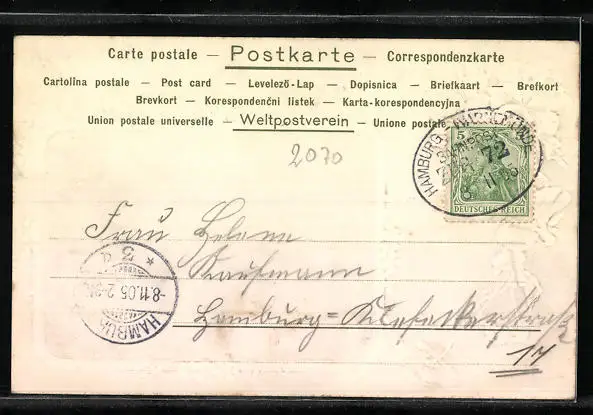 Carte postale — Postkarte — Correspondenzkarte
Cartolina postale — Post card — Levelező-Lap — Dopisnica — Briefkaart — Brefkort
Brevkort — Korespondenční listek — Karta-korespondencyjna
Union postale universelle — Weltpostverein — Unione postale
HAMBURG
5
72
DEUTSCHES REICH
2070
Frau Helene
Kaufmann
Hamburg=
17
* 3 *
-8.11.05 2-3N
HAMBURG